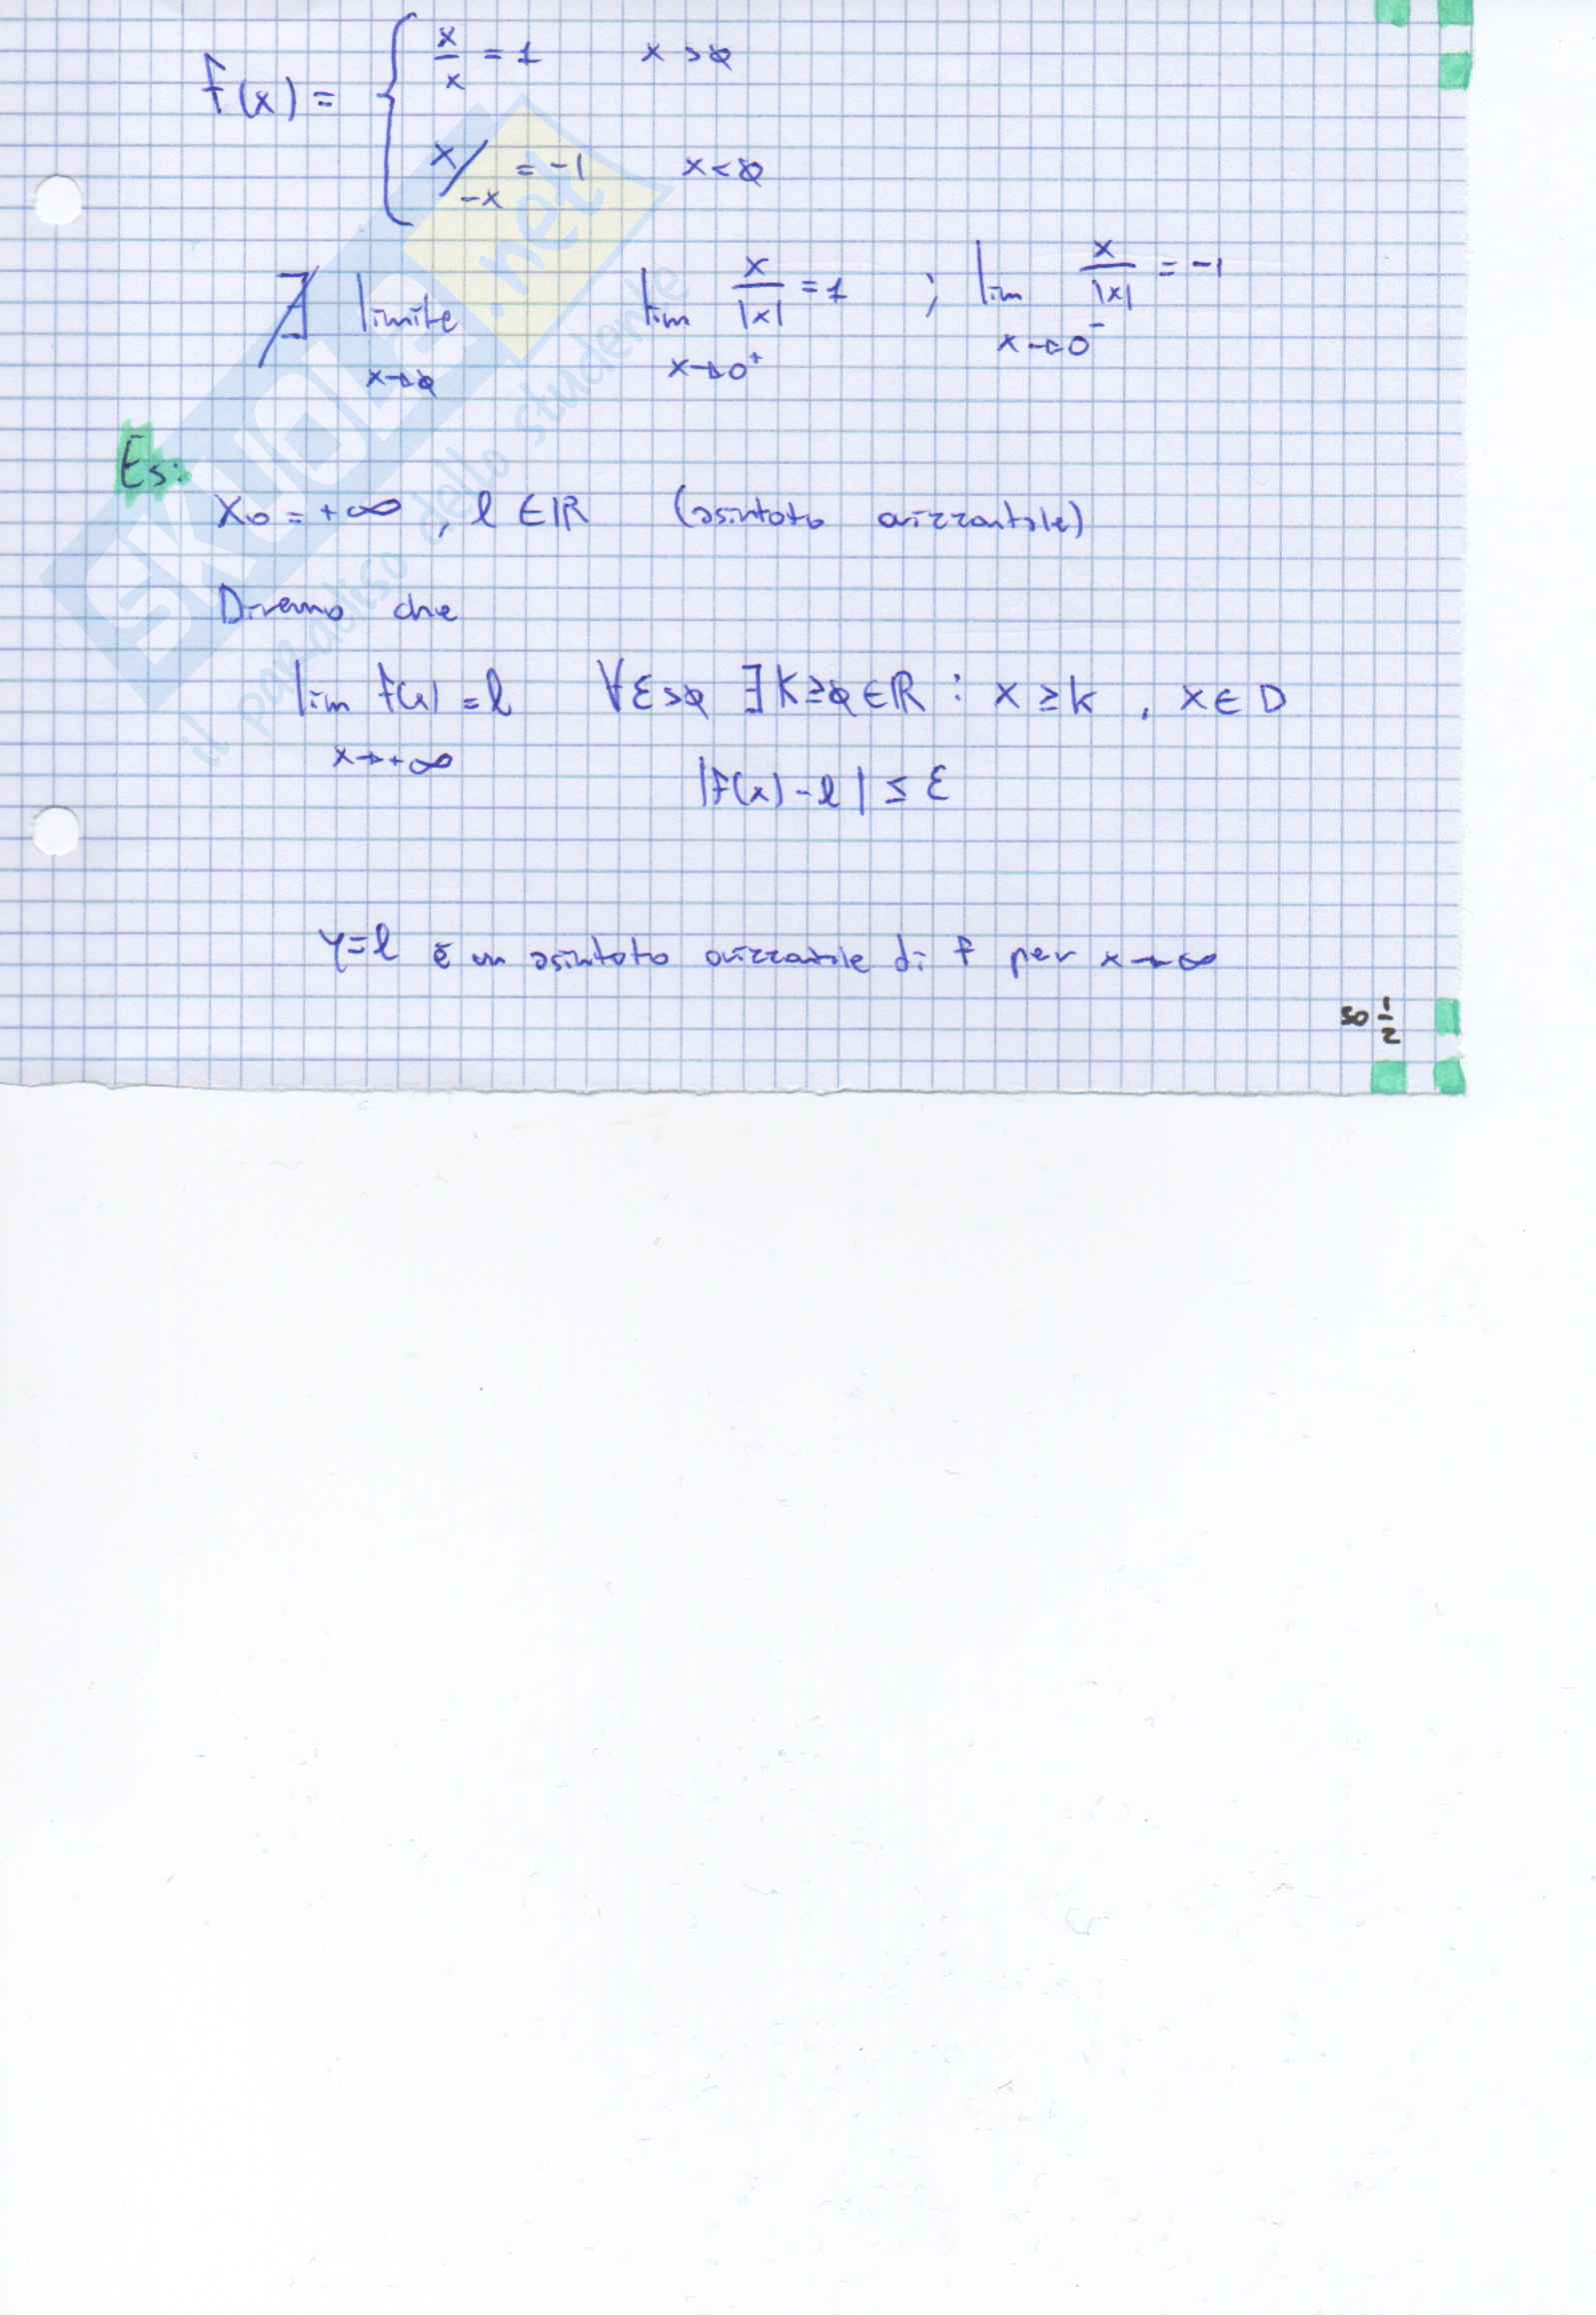 f(x) = { x/x = 1 x > 0
x/-x = -1 x < 0
∄ limite x→0 lim x→0⁺ x/|x| = 1 ; lim x→0⁻ x/|x| = -1
Es:
x₀ = +∞ , l ∈ ℝ (asintoto orizzontale)
Diremo che
lim x→+∞ f(x) = l ∀ε>0 ∃ k≥0 ∈ ℝ : x ≥ k , x ∈ D
|f(x) - l| ≤ ε
y = l è un asintoto orizzontale di f per x→∞
50 1/2
SKUOLA.net
il paradiso dello studente